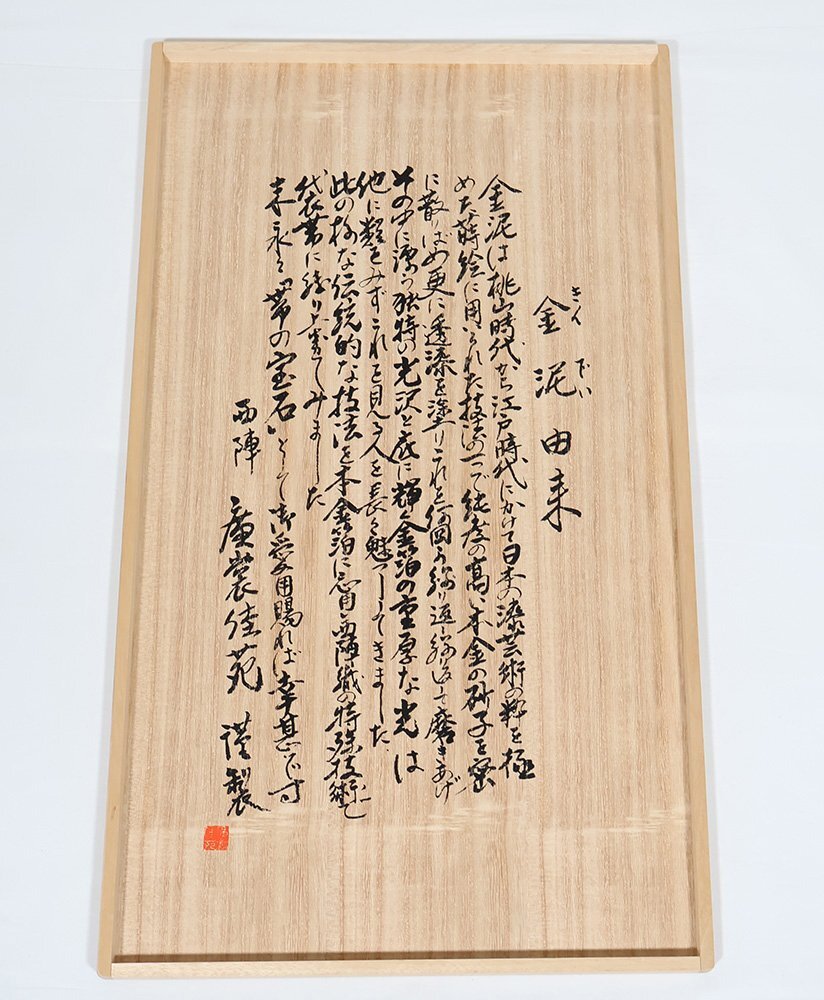 金泥由来
きん でい
金泥は桃山時代から江戸時代にかけて日本の漆芸術の粋を極
めた蒔絵に用いられた技法の一つで純度の高い本金の砂子を密
に散りばめ更に透漆を塗りこれを何回も繰り返し繰り返して磨きあげ
その中に漂う独特の光沢と底に輝く金箔の重厚な光は
他に類をみずこれを見る人を長く魅了してきました
此の様な伝統的な技法を本金箔に応用し西陣織の特殊技術で
袋帯に織り上げてみました
末永く"帯の宝石"として御愛用賜れば幸甚です
西陣 廣裳佳苑 謹製